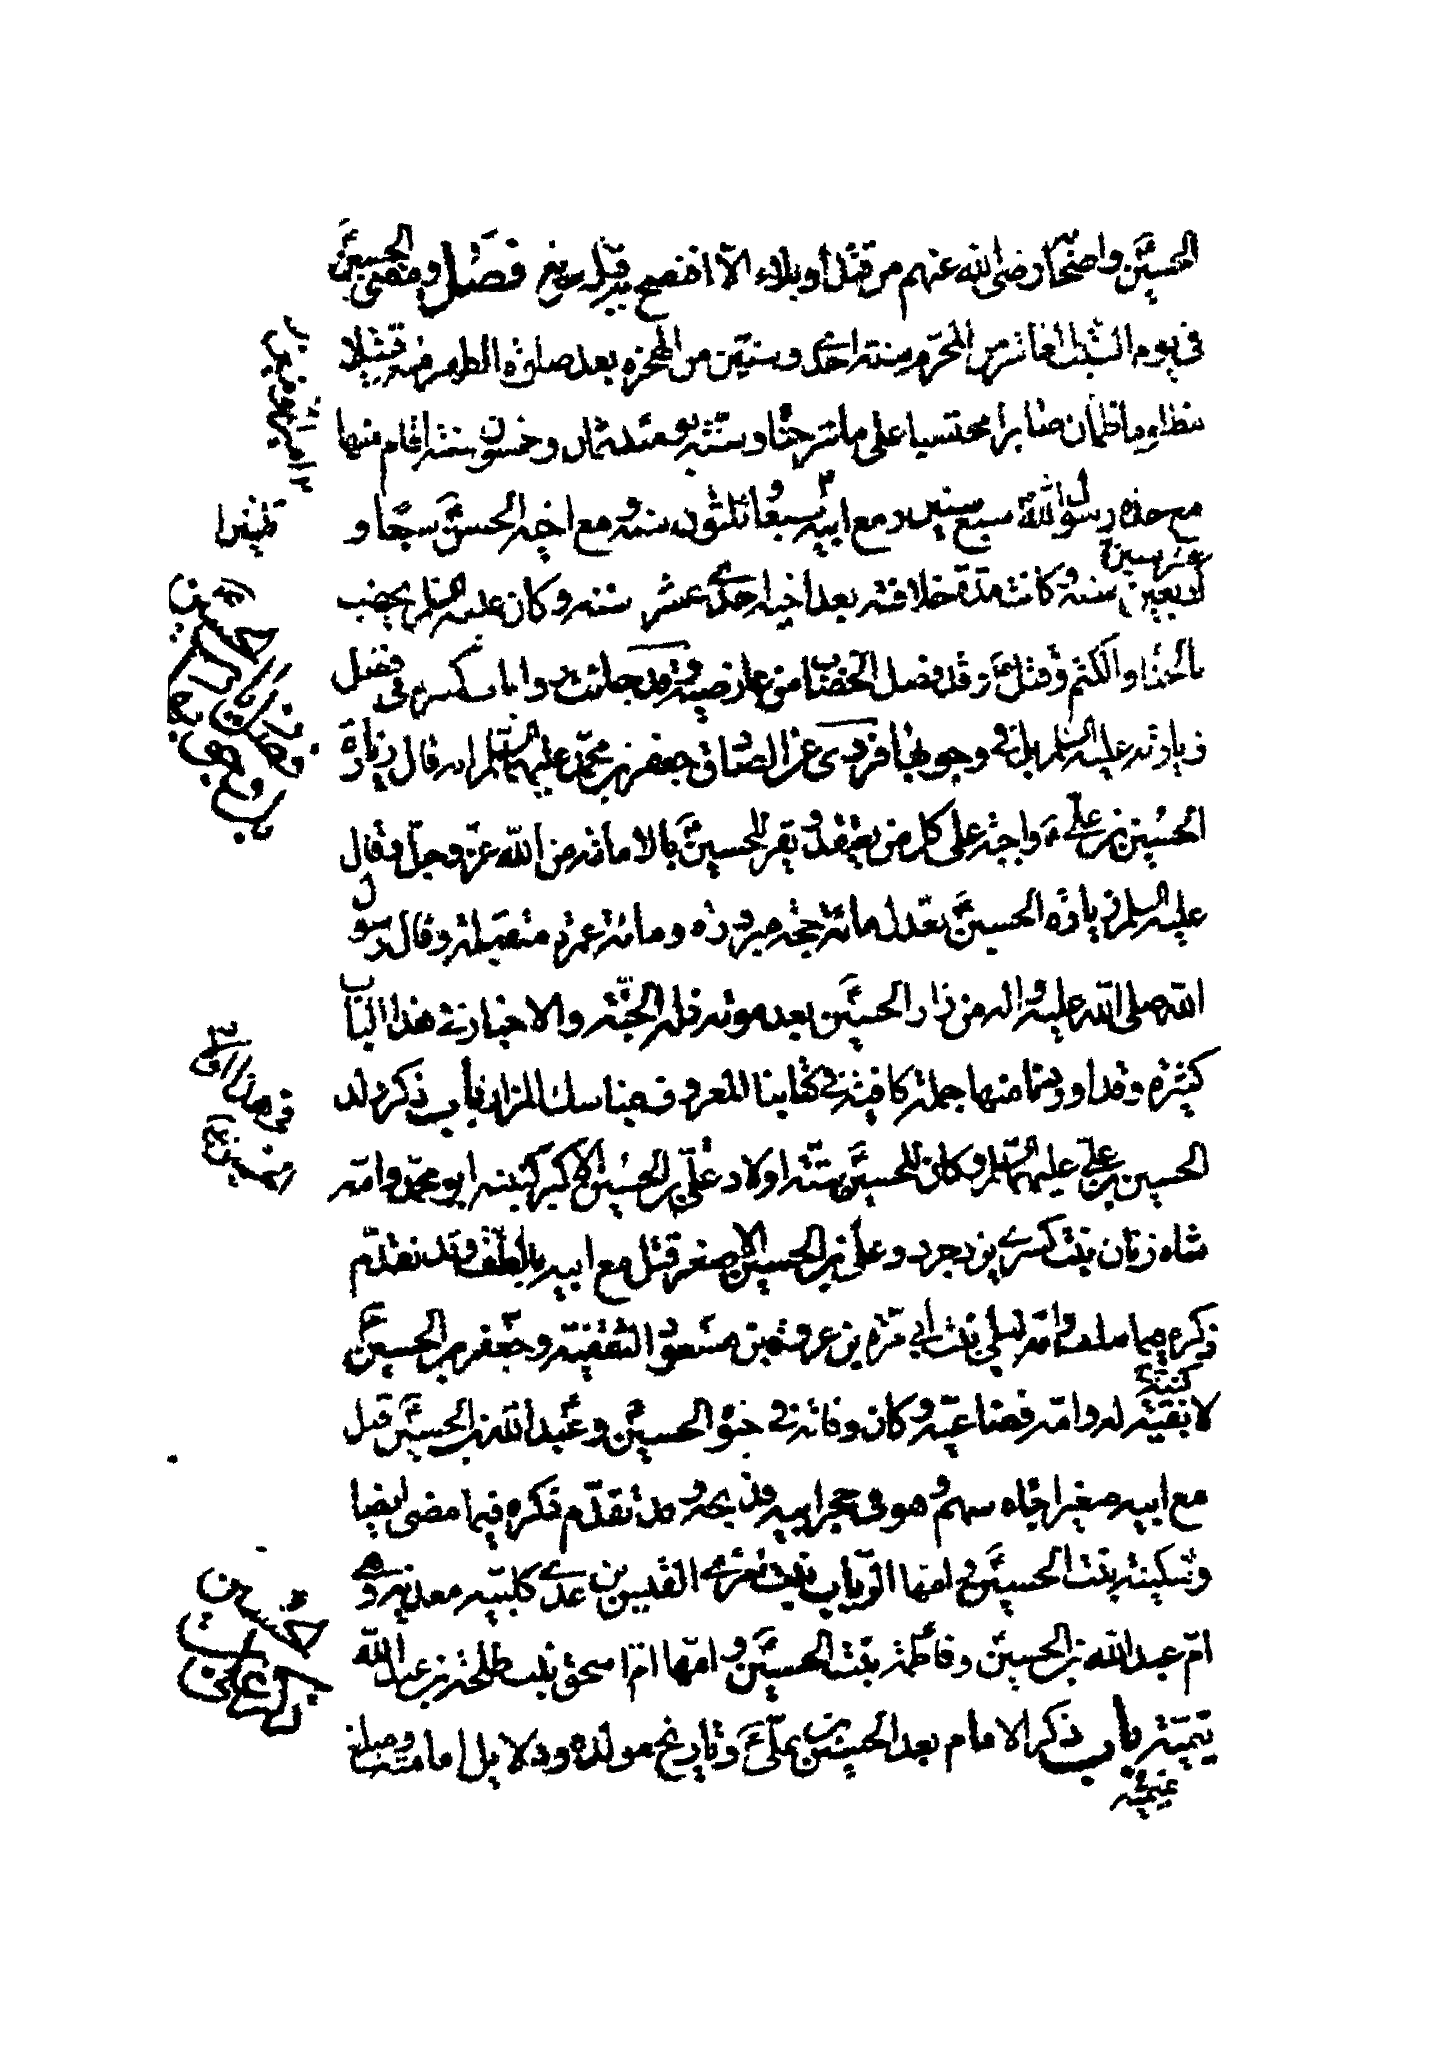 الحسين واصحابه رضى الله عنهم من قتل أو بلاء الا افتضح به قبل موته فصل ومضى الحسين
فى يوم السبت العاشر من المحرم سنة احدى وستين من الهجرة بعد صلوة الظهر منه قتيلا
مظلوما ظمان صابرا محتسبا على ما شرحنا وسنه يومئذ ثمان وخمسون سنة اقام منها
مع جده رسول الله سبع سنين ومع ابيه سبعا وثلثون سنة ومع اخيه الحسن سبعا و
اربعين سنة وكانت مدة خلافته بعد اخيه احدى عشر سنة وكان عليه السلم يخضب
بالحنا والكتم وقتل وقد نصل الخضاب من عارضيه وقد جائت روايات كثيرة فى فضل
زيارته عليه السلم بل فى وجوبها فروى عن الصادق جعفر بن محمد عليهما السلم انه قال زيارة
الحسين بن على واجبة على كل من يعتقد ويقر للحسين بالامامة من الله عز وجل وقال
عليه السلم زيارة الحسين تعدل مائة حجة مبرورة ومائة عمرة متقبلة وقال رسول
الله صلى الله عليه واله من زار الحسين بعد موته فله الجنة والاخبار فى هذا الباب
كثيرة وقد اوردنا منها جملة كافية فى كتابنا المعروف بمناسك المزار باب ذكر ولد
الحسين بن على عليهما السلم وكان للحسين ستة اولاد على بن الحسين الاكبر كنيته ابو محمد وامه
شاه زنان بنت كسرى يزدجرد وعلى بن الحسين الاصغر قتل مع ابيه بالطف وقد تقدم
ذكره فيما سلف وامه ليلى بنت ابى مرة بن عروة بن مسعود الثقفية وجعفر بن الحسين
لا بقية له وامه قضاعية وكان وفاته فى حيوة الحسين وعبد الله بن الحسين قتل
مع ابيه صغيرا جاه سهم وهو فى حجر ابيه فذبحه وقد تقدم ذكره فيما مضى ايضا
وسكينة بنت الحسين وامها الرباب بنت امرء القيس بن عدى كلبية معدية وهى
ام عبد الله بن الحسين وفاطمة بنت الحسين وامها ام اسحق بنت طلحة بن عبد الله
تيمية باب ذكر الامام بعد الحسين بن على وتاريخ مولده ودلايل امامته ومبلغ